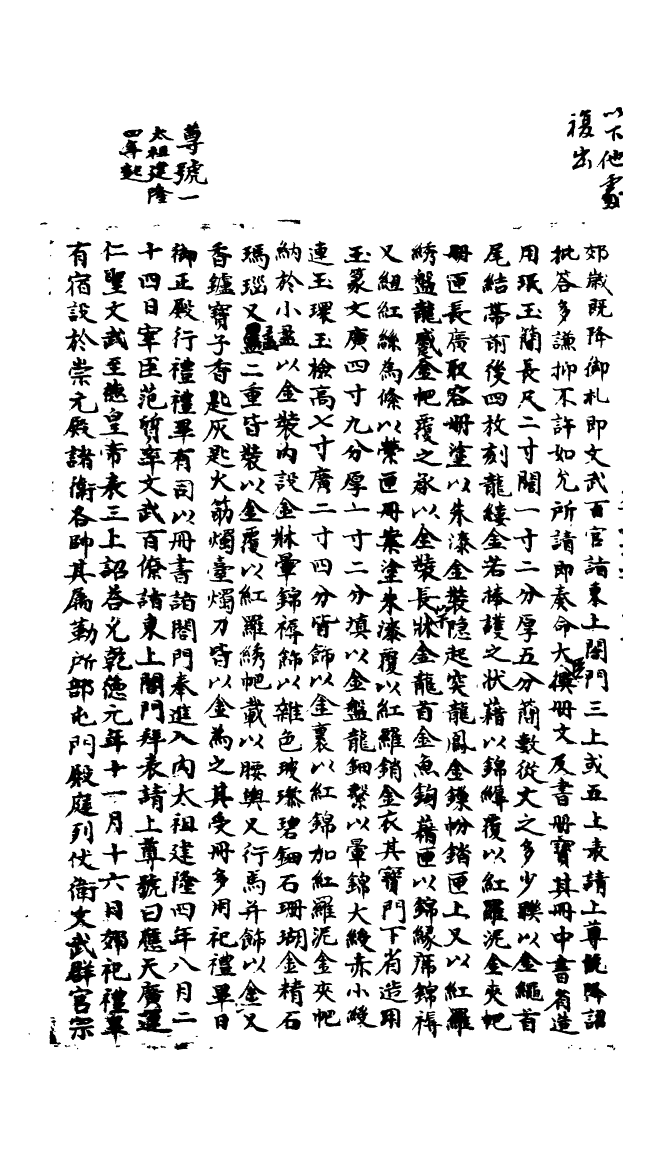 以下他處
複出
尊號一
太祖建隆
四年起
郊歲既降御札即文武百官詣東上閤門三上或五上表請上尊號降詔
批答多謙抑不許如允所請即奏命大臣撰冊文及書冊寶其冊中書省造
用珉玉簡長尺二寸闊一寸二分厚五分簡數從文之多少聯以金繩首
尾結帶前後四枚刻龍縷金若捧護之狀藉以錦縟覆以紅羅泥金夾帊
冊匣長廣取容冊塗以朱漆金裝隱起突龍鳳金鏁帉錔匣上又以紅羅
綉盤龍蹙金帊覆之承以金裝長竿牀金龍首金魚鉤藉匣以錦緣席錦褥
又紐紅絲為絛以縈匣冊案塗朱漆覆以紅羅銷金衣其寶門下省造用
玉篆文廣四寸九分厚一寸二分填以金盤龍鈕繫以暈錦大綬赤小綬
連玉環玉檢高七寸廣二寸四分皆飾以金裹以紅錦加紅羅泥金夾帊
納於小盝以金裝內設金牀暈錦褥飾以雜色玻瓈碧鈿石珊瑚金精石
瑪瑙又盝二重皆裝以金覆以紅羅綉帊載以腰輿又行馬并飾以金又
香鑪寶子香匙灰匙火筯燭臺燭刀皆以金為之其受冊多用祀禮畢日
御正殿行禮禮畢有司以冊書詣閤門奉進入內太祖建隆四年八月二
十四日宰臣范質率文武百僚詣東上閤門拜表請上尊號曰應天廣運
仁聖文武至德皇帝表三上詔答允乾德元年十一月十六日郊祀禮畢
有宿設於崇元殿諸衛各帥其屬勒所部屯門殿庭列仗衛文武群官宗